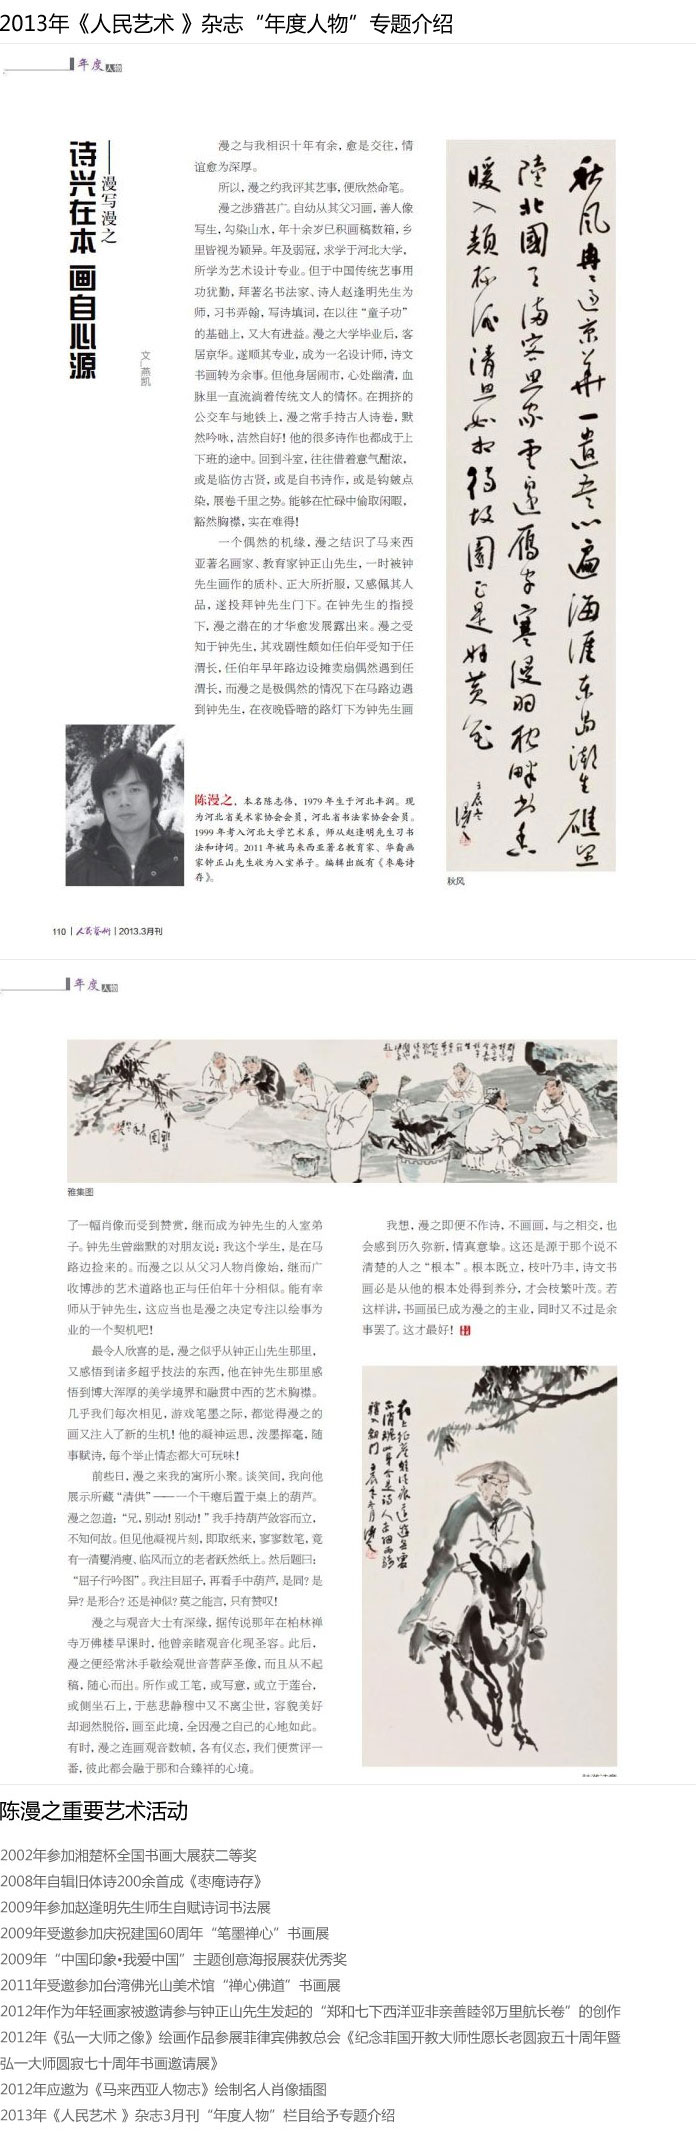 2013年《人民艺术 》杂志“年度人物”专题介绍
年度人物
诗兴在本 画自心源
——漫写漫之
文/燕凯
漫之与我相识十年有余，愈是交往，情
谊愈为深厚。
所以，漫之约我评其艺事，便欣然命笔。
漫之涉猎甚广。自幼从其父习画，善人像
写生，勾染山水，年十余岁已积画稿数箱，乡
里皆视为颖异。年及弱冠，求学于河北大学，
所学为艺术设计专业。但于中国传统艺事用
功犹勤，拜著名书法家、诗人赵逢明先生为
师，习书弄翰，写诗填词，在以往“童子功”
的基础上，又大有进益。漫之大学毕业后，客
居京华。遂顺其专业，成为一名设计师，诗文
书画转为余事。但他身居闹市，心处幽清，血
脉里一直流淌着传统文人的情怀。在拥挤的
公交车与地铁上，漫之常手持古人诗卷，默
然吟咏，洁然自好！他的很多诗作也都成于上
下班的途中。回到斗室，往往借着意气酣浓，
或是临仿古贤，或是自书诗作，或是钩皴点
染，展卷千里之势。能够在忙碌中偷取闲暇，
豁然胸襟，实在难得！
一个偶然的机缘，漫之结识了马来西
亚著名画家、教育家钟正山先生，一时被钟
先生画作的质朴、正大所折服，又感佩其人
品，遂投拜钟先生门下。在钟先生的指授
下，漫之潜在的才华愈发展露出来。漫之受
知于钟先生，其戏剧性颇如任伯年受知于任
渭长，任伯年早年路边设摊卖扇偶然遇到任
渭长，而漫之是极偶然的情况下在马路边遇
到钟先生，在夜晚昏暗的路灯下为钟先生画
陈漫之，本名陈志伟，1979 年生于河北丰润。现
为河北省美术家协会会员，河北省书法家协会会员。
1999 年考入河北大学艺术系，师从赵逢明先生习书
法和诗词。2011 年被马来西亚著名教育家、华裔画
家钟正山先生收为入室弟子。编辑出版有《枣庵诗
存》。
秋风
110 | 人民艺术 | 2013.3月刊
年度人物
雅集图
了一幅肖像而受到赞赏，继而成为钟先生的入室弟
子。钟先生曾幽默的对朋友说：我这个学生，是在马
路边捡来的。而漫之以从父习人物肖像始，继而广
收博涉的艺术道路也正与任伯年十分相似。能有幸
师从于钟先生，这应当也是漫之决定专注以绘事为
业的一个契机吧！
最令人欣喜的是，漫之似乎从钟正山先生那里，
又感悟到诸多超乎技法的东西，他在钟先生那里感
悟到博大浑厚的美学境界和融贯中西的艺术胸襟。
几乎我们每次相见，游戏笔墨之际，都觉得漫之的
画又注入了新的生机！他的凝神运思，泼墨挥毫，随
事赋诗，每个举止情态都大可玩味！
前些日，漫之来我的寓所小聚。谈笑间，我向他
展示所藏“清供”——一个干瘪后置于桌上的葫芦。
漫之忽道：“兄，别动！别动！”我手持葫芦敛容而立，
不知何故。但见他凝视片刻，即取纸来，寥寥数笔，竟
有一清矍消瘦、临风而立的老者跃然纸上。然后题曰：
“屈子行吟图”。我注目屈子，再看手中葫芦，是同？是
异？是形合？还是神似？莫之能言，只有赞叹！
漫之与观音大士有深缘，据传说那年在柏林禅
寺万佛楼早课时，他曾亲睹观音化现圣容。此后，
漫之便经常沐手敬绘观世音菩萨圣像，而且从不起
稿，随心而出。所作或工笔，或写意，或立于莲台，
或侧坐石上，于慈悲静穆中又不离尘世，容貌美好
却迥然脱俗，画至此境，全因漫之自己的心地如此。
有时，漫之连画观音数帧，各有仪态，我们便赏评一
番，彼此都会融于那和合臻祥的心境。
我想，漫之即便不作诗，不画画，与之相交，也
会感到历久弥新，情真意挚。这还是源于那个说不
清楚的人之“根本”。根本既立，枝叶乃丰，诗文书
画必是从他的根本处得到养分，才会枝繁叶茂。若
这样讲，书画虽已成为漫之的主业，同时又不过是余
事罢了。这才最好！
陈漫之重要艺术活动
2002年参加湘楚杯全国书画大展获二等奖
2008年自辑旧体诗200余首成《枣庵诗存》
2009年参加赵逢明先生师生自赋诗词书法展
2009年受邀参加庆祝建国60周年“笔墨禅心”书画展
2009年“中国印象•我爱中国”主题创意海报展获优秀奖
2011年受邀参加台湾佛光山美术馆“禅心佛道”书画展
2012年作为年轻画家被邀请参与钟正山先生发起的“郑和七下西洋亚非亲善睦邻万里航长卷”的创作
2012年《弘一大师之像》绘画作品参展菲律宾佛教总会《纪念菲国开教大师性愿长老圆寂五十周年暨
弘一大师圆寂七十周年书画邀请展》
2012年应邀为《马来西亚人物志》绘制名人肖像插图
2013年《人民艺术 》杂志3月刊“年度人物”栏目给予专题介绍